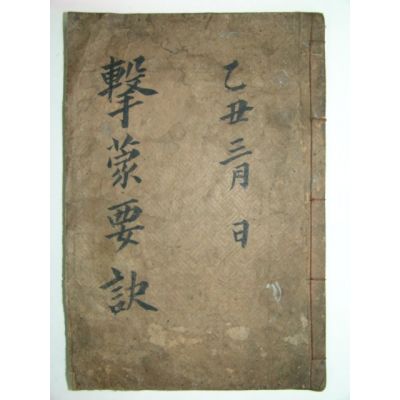 乙丑三月 日
擊蒙要訣